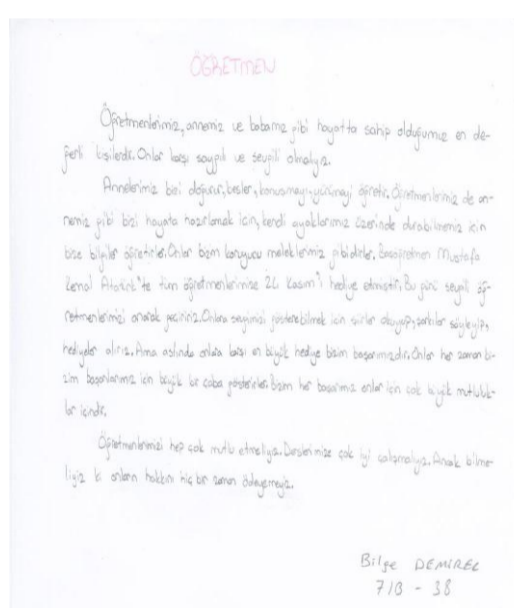 ÖĞRETMEN
Öğretmenlerimiz, annemiz ve babamız gibi hayatta sahip olduğumuz en de-
ğerli kişilerdir. Onlar karşı saygılı ve sevgili olmalıyız.
Annelerimiz bizi doğurur, besler, konuşmayı, yürümeyi öğretir. Öğretmenlerimiz de an-
nemiz gibi bizi hayata hazırlamak için, kendi ayaklarımız üzerinde durabilmemiz için
bize bilgiler öğretirler. Onlar bizim koruyucu meleklerimiz gibidirler. Başöğretmen Mustafa
Kemal Atatürk'te tüm öğretmenlerimize 24 Kasım'ı hediye etmiştir. Bu günü sevgili öğ-
retmenlerimizi anarak geçiririz. Onlara sevgimizi gösterebilmek için şiirler okuyup, şarkılar söyleyip,
hediyeler alırız. Ama aslında onlara karşı en büyük hediye bizim başarımızdır. Onlar her zaman bi-
zim başarılarımız için büyük bir çaba gösterirler. Bizim her başarımız onlar için çok büyük mutluluk-
lar içindir.
Öğretmenlerimizi hep çok mutlu etmeliyiz. Derslerimize çok iyi çalışmalıyız. Ancak bilme-
liyiz ki onların hakkını hiç bir zaman ödeyemeyiz.
Bilge DEMİREL
7/B - 38